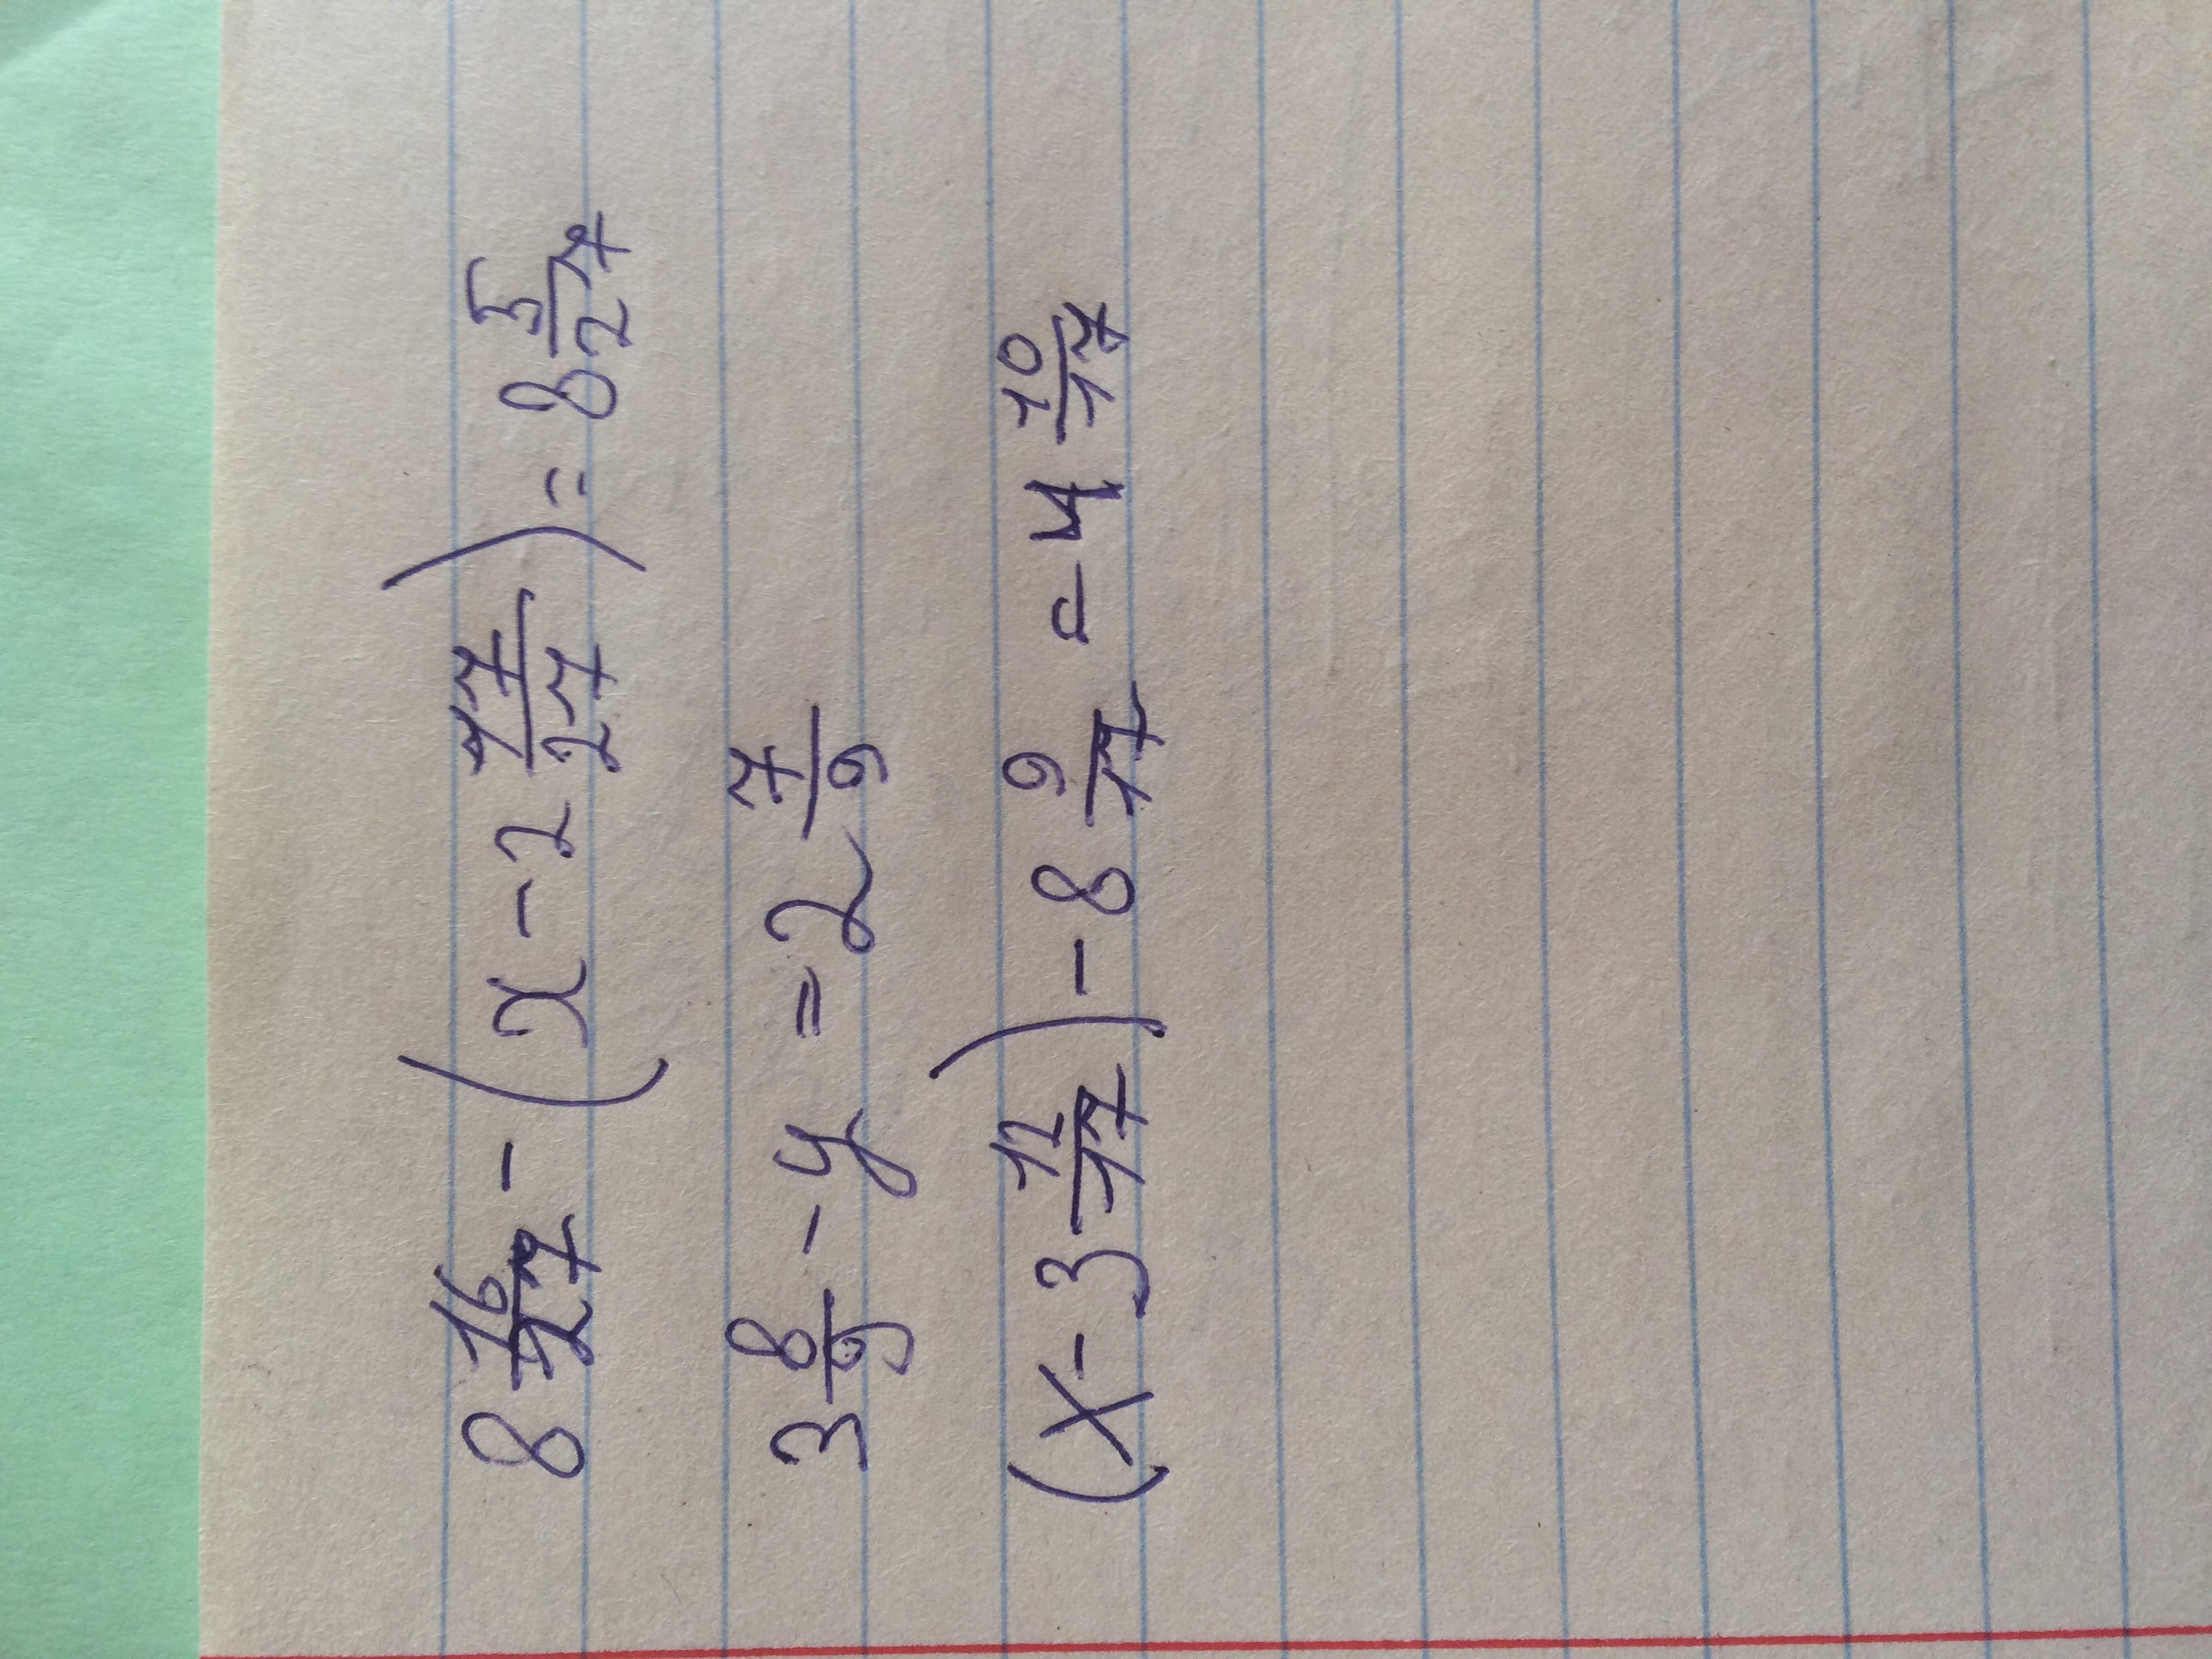 8 16/27 - (x - 2 17/27) = 8 5/27
3 8/9 - y = 2 7/9
(x - 3 12/17) - 8 9/17 = 4 10/17